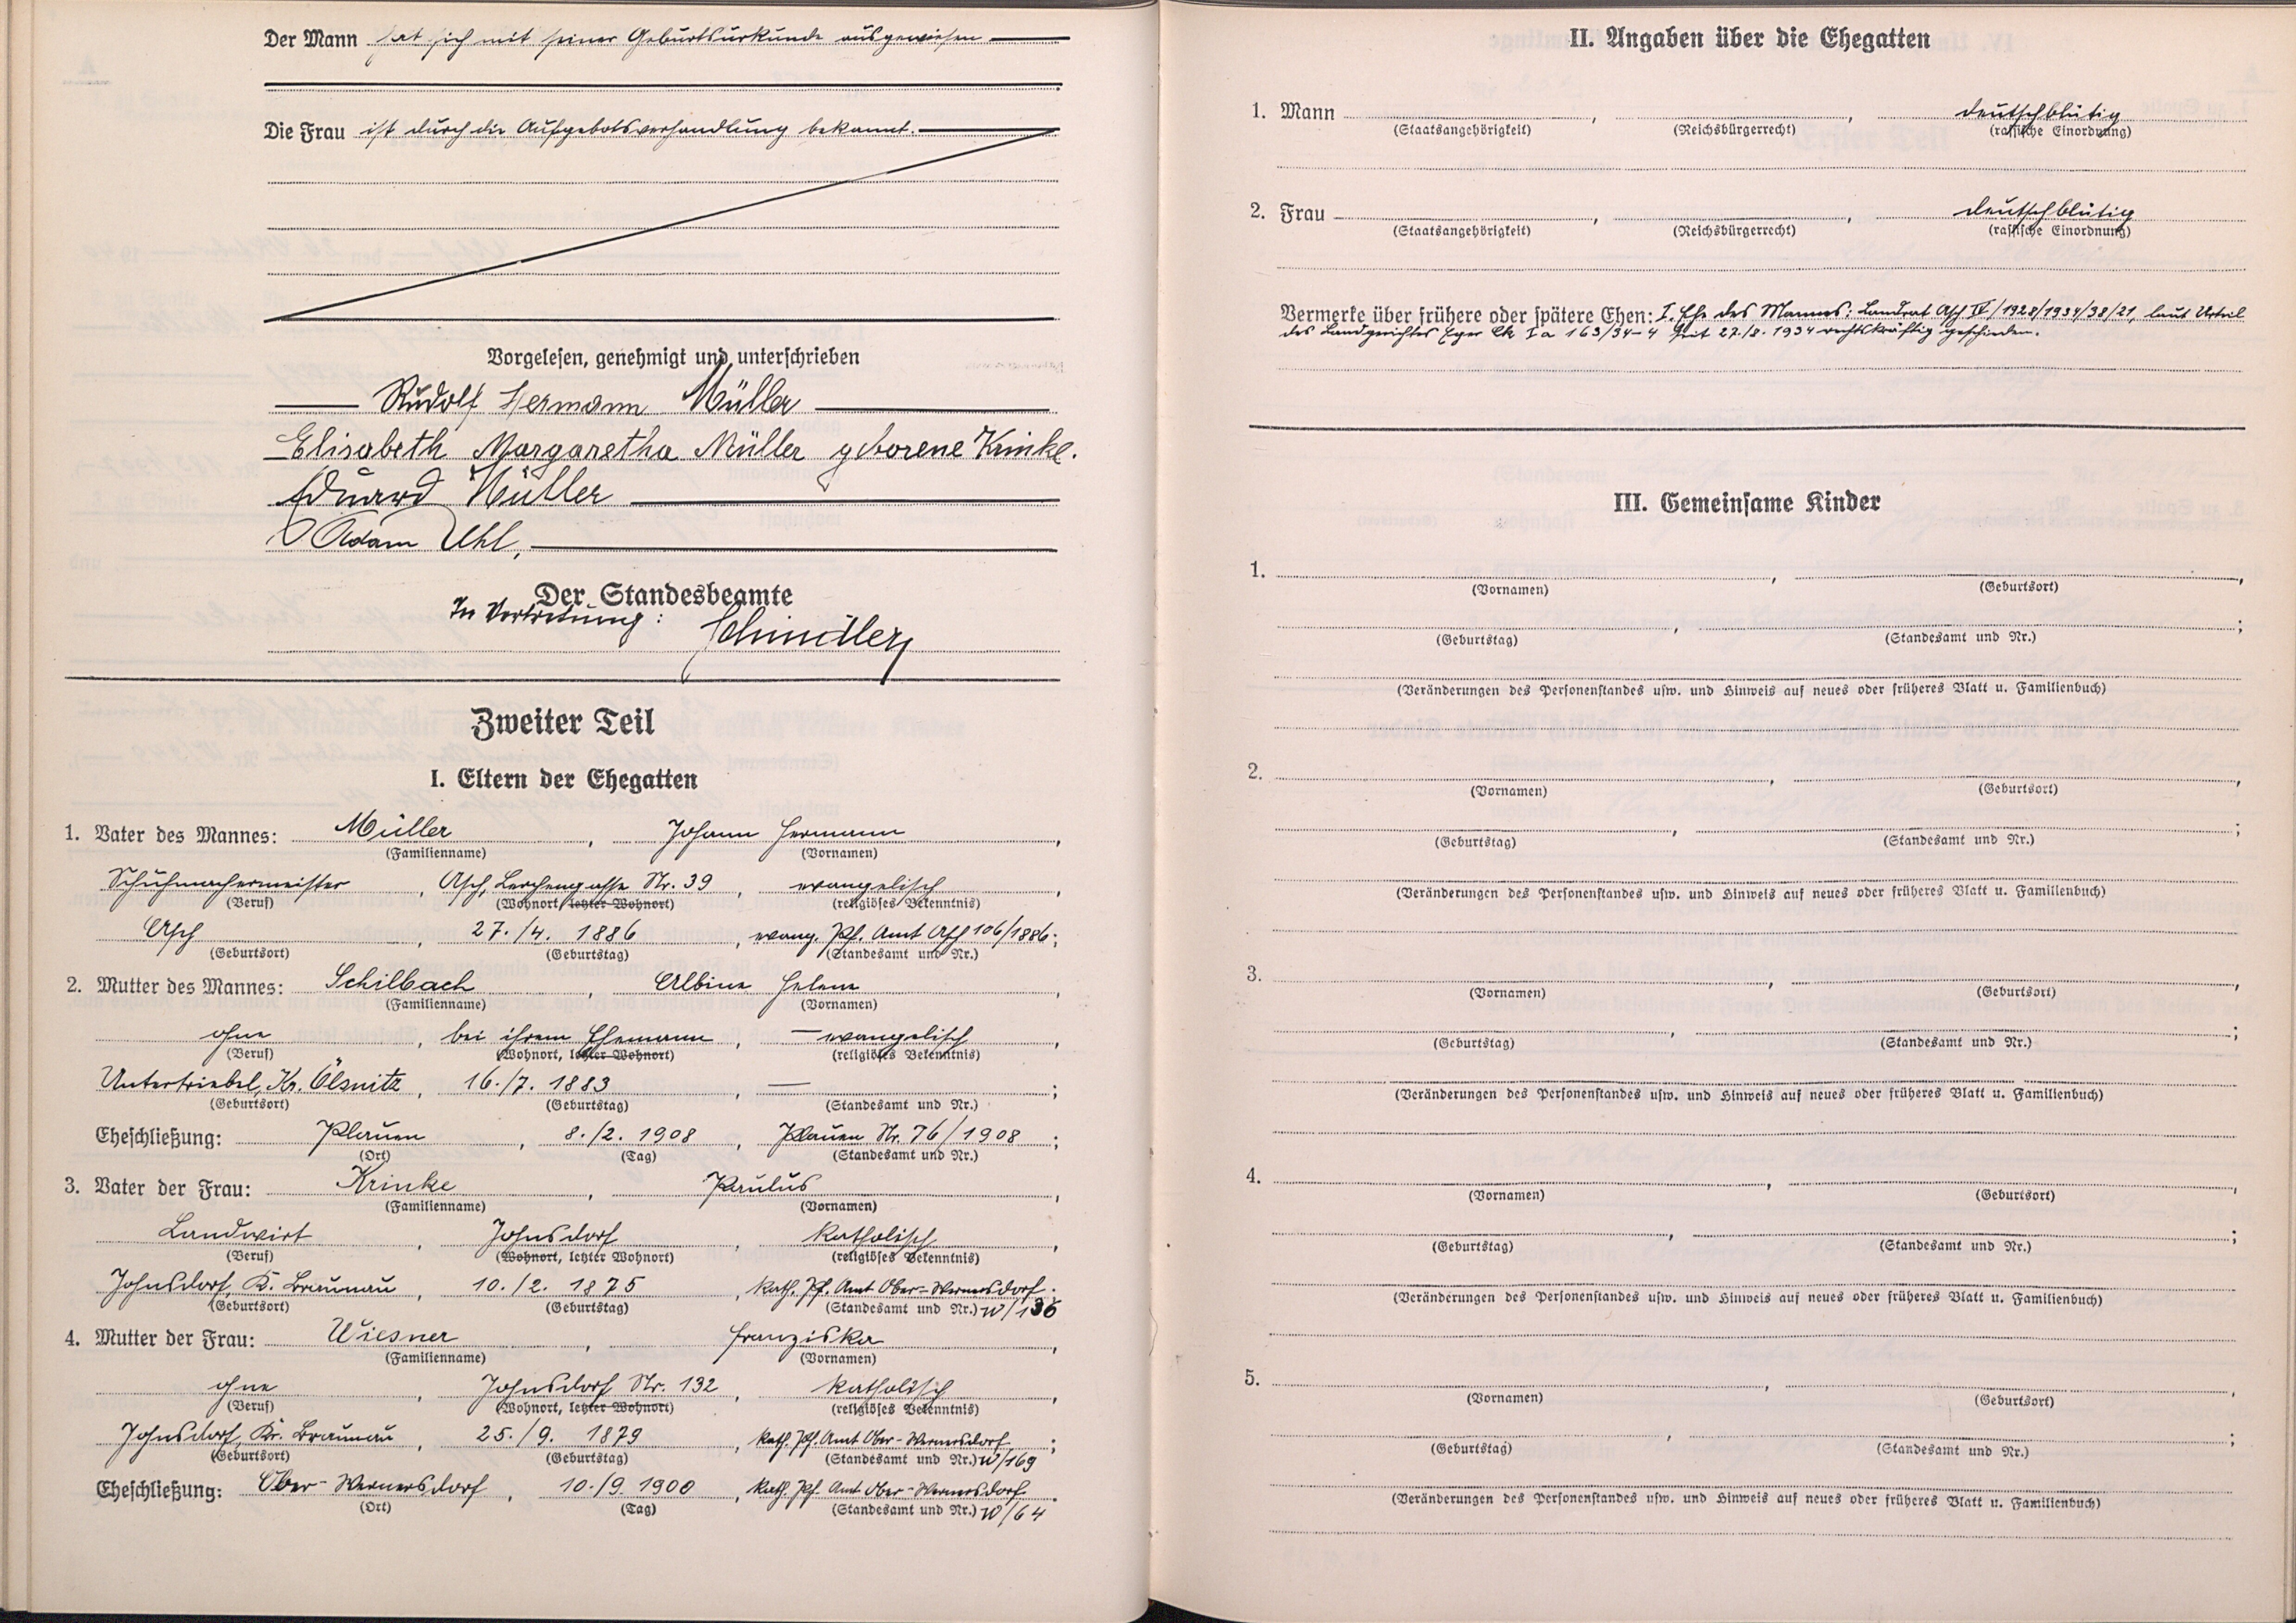 Der Mann hat sich mit seiner Geburtsurkunde ausgewiesen
Die Frau ist durch die Aufgebotsverhandlung bekannt.
Vorgelesen, genehmigt und unterschrieben
Rudolf Hermann Müller
Elisabeth Margaretha Müller geborene Krinke.
Eduard Müller
Adam Uhl,
Der Standesbeamte
In Vertretung: Schindler
Zweiter Teil
I. Eltern der Ehegatten
1. Vater des Mannes: Müller, Johann Hermann,
(Familienname) (Vornamen)
Schuhmachermeister, Asch, Lerchengasse Nr. 39, evangelisch,
(Beruf) (Wohnort, letzter Wohnort) (religiöses Bekenntnis)
Asch, 27./4. 1886, evang. Pf. Amt Asch 106/1886;
(Geburtsort) (Geburtstag) (Standesamt und Nr.)
2. Mutter des Mannes: Schilbach, Albine Helene,
(Familienname) (Vornamen)
ohne, bei ihrem Ehemann, — evangelisch,
(Beruf) (Wohnort, letzter Wohnort) (religiöses Bekenntnis)
Untertriebel, Kr. Ölsnitz, 16./7. 1883, —;
(Geburtsort) (Geburtstag) (Standesamt und Nr.)
Eheschließung: Plauen, 8./2. 1908, Plauen Nr. 76/1908;
(Ort) (Tag) (Standesamt und Nr.)
3. Vater der Frau: Krinke, Paulus,
(Familienname) (Vornamen)
Landwirt, Johnsdorf, katholisch,
(Beruf) (Wohnort, letzter Wohnort) (religiöses Bekenntnis)
Johnsdorf, K. Braunau, 10./2. 1875, kath. Pf. Amt Ober-Wernersdorf;
(Geburtsort) (Geburtstag) (Standesamt und Nr.) W/136
4. Mutter der Frau: Wiesner, Franziska,
(Familienname) (Vornamen)
ohne, Johnsdorf Nr. 132, katholisch,
(Beruf) (Wohnort, letzter Wohnort) (religiöses Bekenntnis)
Johnsdorf, Kr. Braunau, 25./9. 1879, kath. Pf. Amt Ober-Wernersdorf;
(Geburtsort) (Geburtstag) (Standesamt und Nr.) W/169
Eheschließung: Ober-Wernersdorf, 10./9. 1900, kath. Pf. Amt Ober-Wernersdorf
(Ort) (Tag) (Standesamt und Nr.) W/64
II. Angaben über die Ehegatten
1. Mann , , deutschblütig
(Staatsangehörigkeit) (Reichsbürgerrecht) (rassische Einordnung)
2. Frau , , deutschblütig
(Staatsangehörigkeit) (Reichsbürgerrecht) (rassische Einordnung)
Vermerke über frühere oder spätere Ehen: I. Ehe des Mannes: Landrat Asch IV/1928/1934/38/21, laut Urteil
des Landgerichtes Eger Ck I a 163/34-4 seit 27./8. 1934 rechtskräftig geschieden.
III. Gemeinsame Kinder
1. , ,
(Vornamen) (Geburtsort)
, ;
(Geburtstag) (Standesamt und Nr.)
(Veränderungen des Personenstandes usw. und Hinweis auf neues oder früheres Blatt u. Familienbuch)
2. , ,
(Vornamen) (Geburtsort)
, ;
(Geburtstag) (Standesamt und Nr.)
(Veränderungen des Personenstandes usw. und Hinweis auf neues oder früheres Blatt u. Familienbuch)
3. , ,
(Vornamen) (Geburtsort)
, ;
(Geburtstag) (Standesamt und Nr.)
(Veränderungen des Personenstandes usw. und Hinweis auf neues oder früheres Blatt u. Familienbuch)
4. , ,
(Vornamen) (Geburtsort)
, ;
(Geburtstag) (Standesamt und Nr.)
(Veränderungen des Personenstandes usw. und Hinweis auf neues oder früheres Blatt u. Familienbuch)
5. , ,
(Vornamen) (Geburtsort)
, ;
(Geburtstag) (Standesamt und Nr.)
(Veränderungen des Personenstandes usw. und Hinweis auf neues oder früheres Blatt u. Familienbuch)